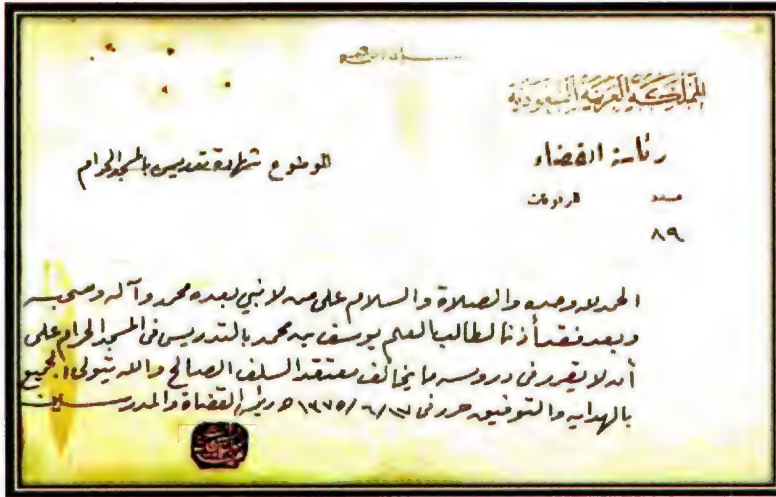 المملكة العربية السعودية
رئاسة القضاء
الموضوع شهادة تدريس بالمسجد الحرام
عدد المرفوعات
٨٩
الحمد لله وحده والصلاة والسلام على من لا نبي بعده محمد وآله وصحبه
وبعد فقد أذنا لطالب العلم يوسف بن محمد بالتدريس في المسجد الحرام على
أن لا يقرر في دروسه ما يخالف معتقد السلف الصالح والله يتولى الجميع
بالهداية والتوفيق حرر في ١٣٧٥/٦/١٧ه رئيس القضاة والمدرسين